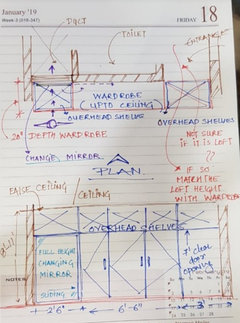 January '19
Week-3 (018-347)
FRIDAY 18
DUCT
TOILET
ENTRANCE
WARDROBE
UPTO CEILING
OVERHEAD SHELVES
OVERHEAD SHELVES
20" DEPTH WARDROBE
NOT SURE
IF IT IS LOFT
??
CHANGING MIRROR
PLAN
* IF SO
MATCH THE
LOFT HEIGHT
WITH WARDROBE
FALSE CEILING
CEILING
OVERHEAD SHELVES
FULL HEIGHT
CHANGING
MIRROR
SLIDING
7' clear
door
opening
NOTES
2'-6"
6'-6"
3'